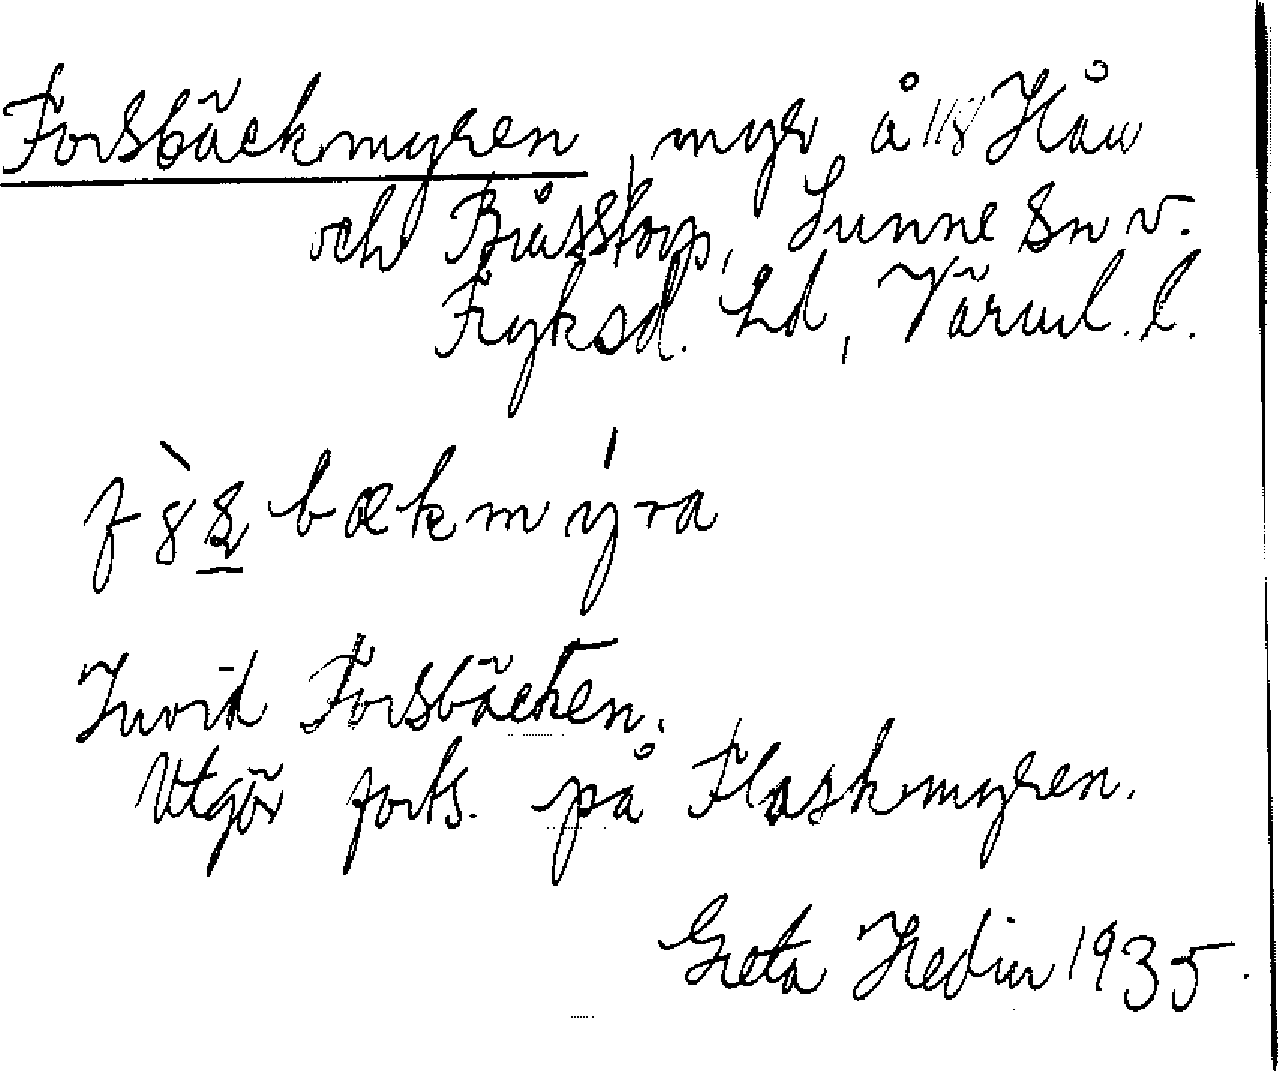 Forsbäckmyren, myr å 118 Hån
och Båsstorp, Sunne sn v.
Fryksd. hd, Värml. l.
bækmýra
Invid Forsbäcken.
Utgör forts. på Flaskmyren.
Greta Hedin 1935.